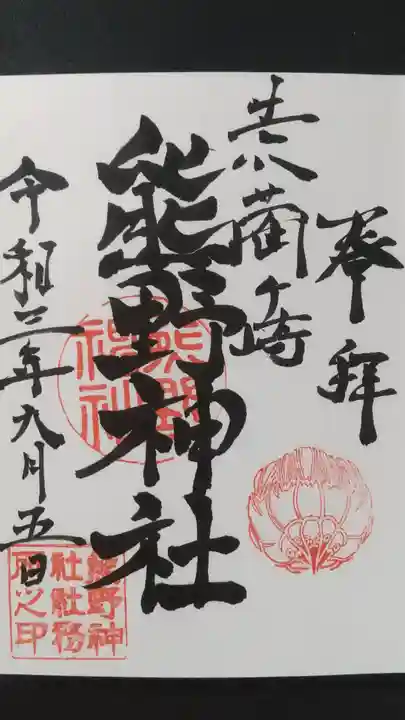 奉拝
志茵ヶ崎
熊野神社
令和三年九月五日
熊野神社
熊野神社社務所之印